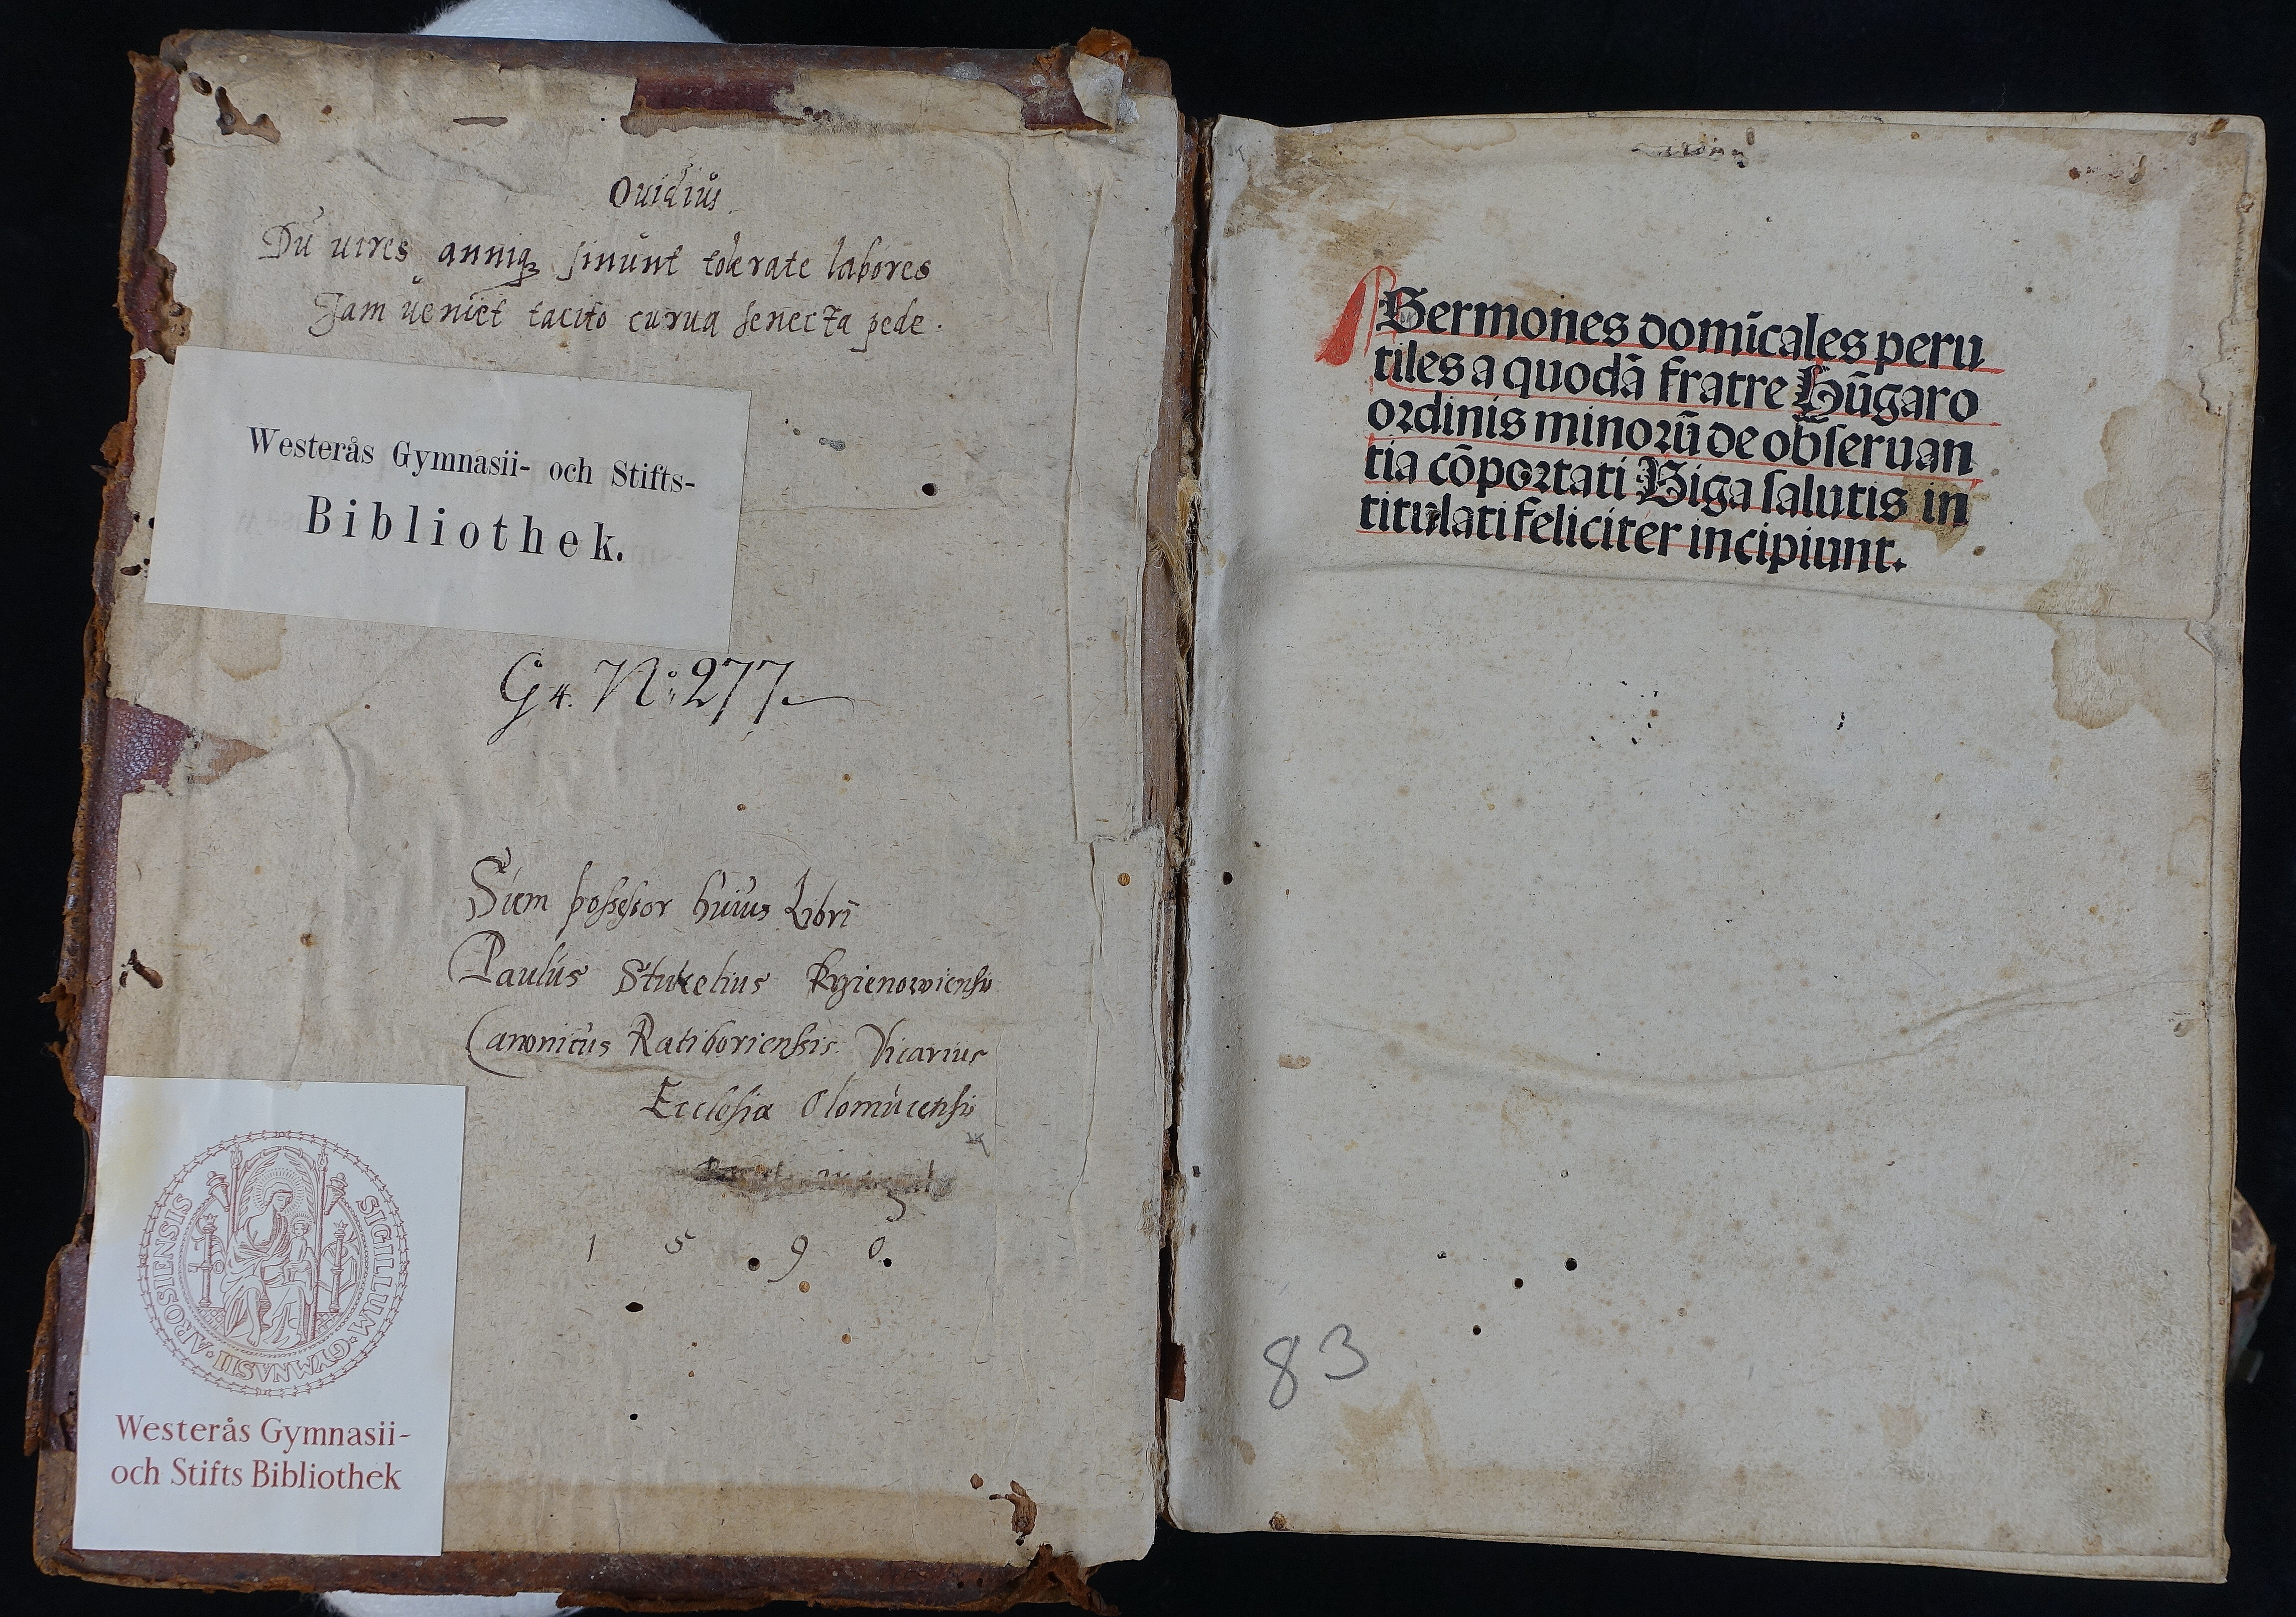 Ouidius
Dū uires anniqꝫ sinunt tolerate labores
Jam ueniet tacito curua senecta pede.
Westerås Gymnasii- och Stifts-
Bibliothek.
G 4. No: 277.
Sum possessor huius Libri
Paulus Stukelius
Canonicus Ratiboriensis. Vicarius
Ecclesiæ Olomucensis
1 5 9 0.
SIGILLUM · GYMNASII · AROSIENSIS
Westerås Gymnasii-
och Stifts Bibliothek
Sermones domīcales peru
tiles a quodā fratre Hūgaro
ordinis minorū de obseruan
tia cōportati Biga salutis in
titulati feliciter incipiunt.
83